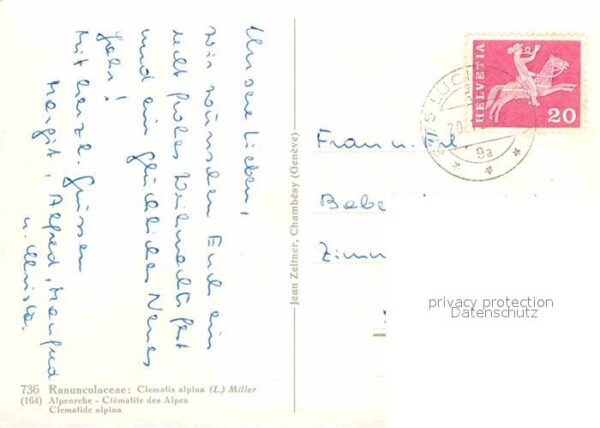 Unsere Lieben,
wir wünschen Euch ein
recht frohes Weihnachtsfest
und ein glückliches Neues
Jahr!
Mit herzl. Grüssen
Margit, Alfred, Manfred
u. Christa.
736 Ranunculaceae: Clematis alpina (L.) Miller
(164) Alpenrebe - Clématite des Alpes
Clematide alpina
Jean Zeltner, Chambésy (Genève)
HELVETIA
20
9a
Frau u. Frl.
Babe
Zimm
privacy protection
Datenschutz